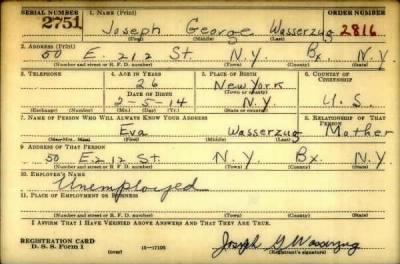 SERIAL NUMBER 1. NAME (Print) ORDER NUMBER
2751 Joseph George Wasserzug 2816
(First) (Middle) (Last)
2. ADDRESS (Print)
50 E. 212 St. N.Y. Bx. N.Y.
(Number and street or R. F. D. number) (Town) (County) (State)
3. TELEPHONE 4. AGE IN YEARS 5. PLACE OF BIRTH 6. COUNTRY OF CITIZENSHIP
26 New York
DATE OF BIRTH (Town or county)
2-5-14 N.Y. U.S.
(Exchange) (Number) (Mo.) (Day) (Yr.) (State or country)
7. NAME OF PERSON WHO WILL ALWAYS KNOW YOUR ADDRESS 8. RELATIONSHIP OF THAT PERSON
Eva Wasserzug Mother
(Mr., Mrs., Miss) (First) (Middle) (Last)
9. ADDRESS OF THAT PERSON
50 E. 212 St. N.Y. Bx. N.Y.
(Number and street or R. F. D. number) (Town) (County) (State)
10. EMPLOYER'S NAME
Unemployed
11. PLACE OF EMPLOYMENT OR BUSINESS
(Number and street or R. F. D. number) (Town) (County) (State)
I AFFIRM THAT I HAVE VERIFIED ABOVE ANSWERS AND THAT THEY ARE TRUE.
REGISTRATION CARD
D. S. S. Form 1 (over) 16—17105 Joseph G Wasserzug
(Registrant's signature)